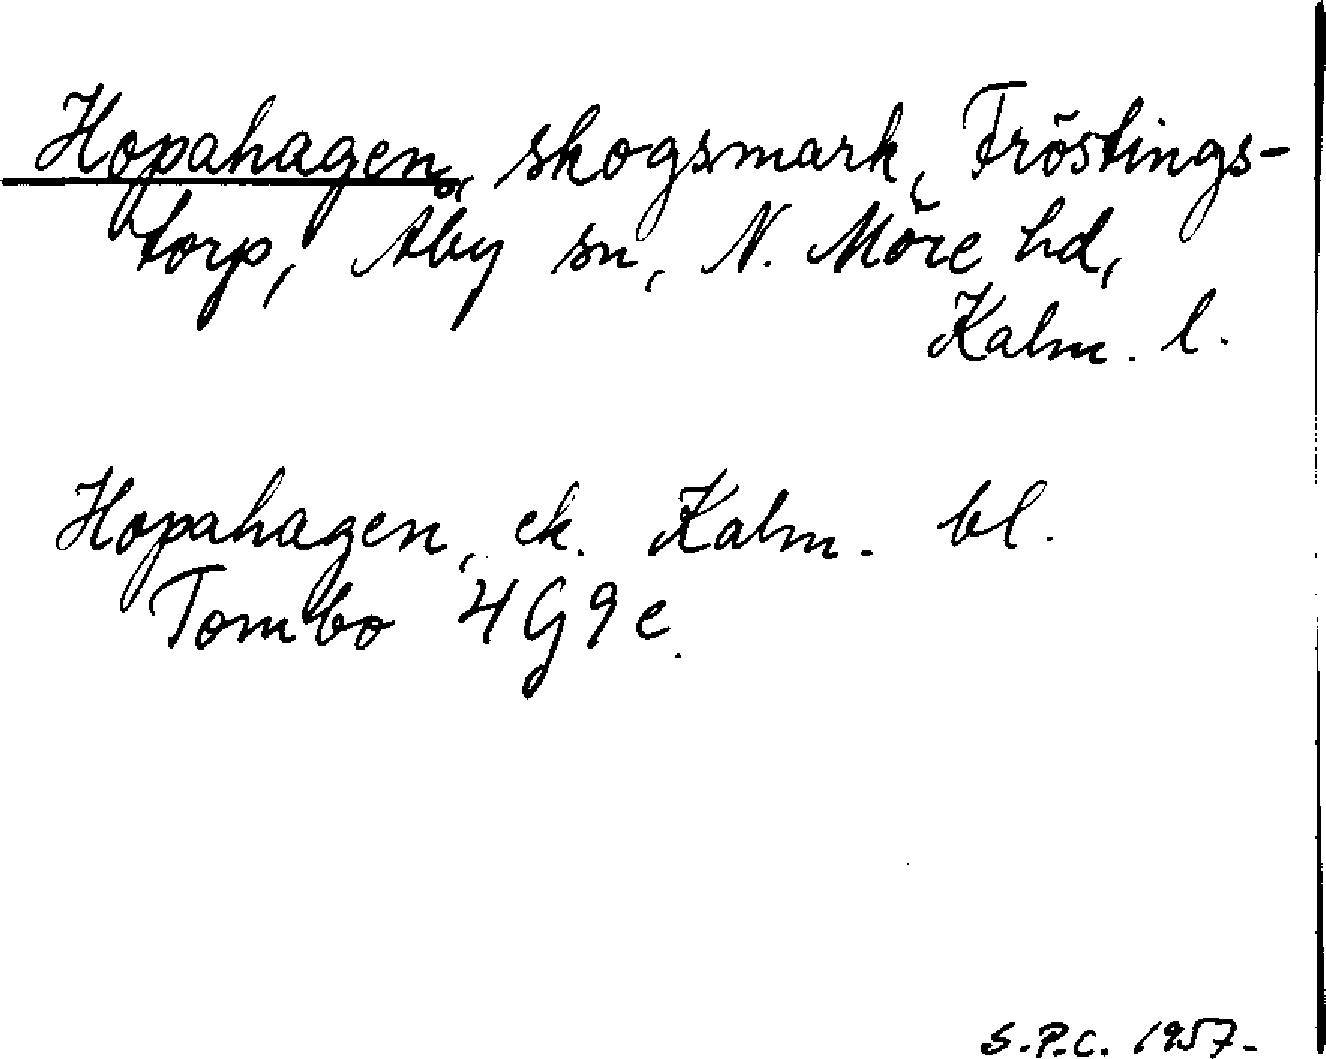 Hopahagen, skogsmark, Fröstings-
torp, Åby sn, N. Möre hd,
Kalm. l.
Hopahagen, ek. Kalm. bl.
Tombo 4G9e.
S.P.C. 1957.